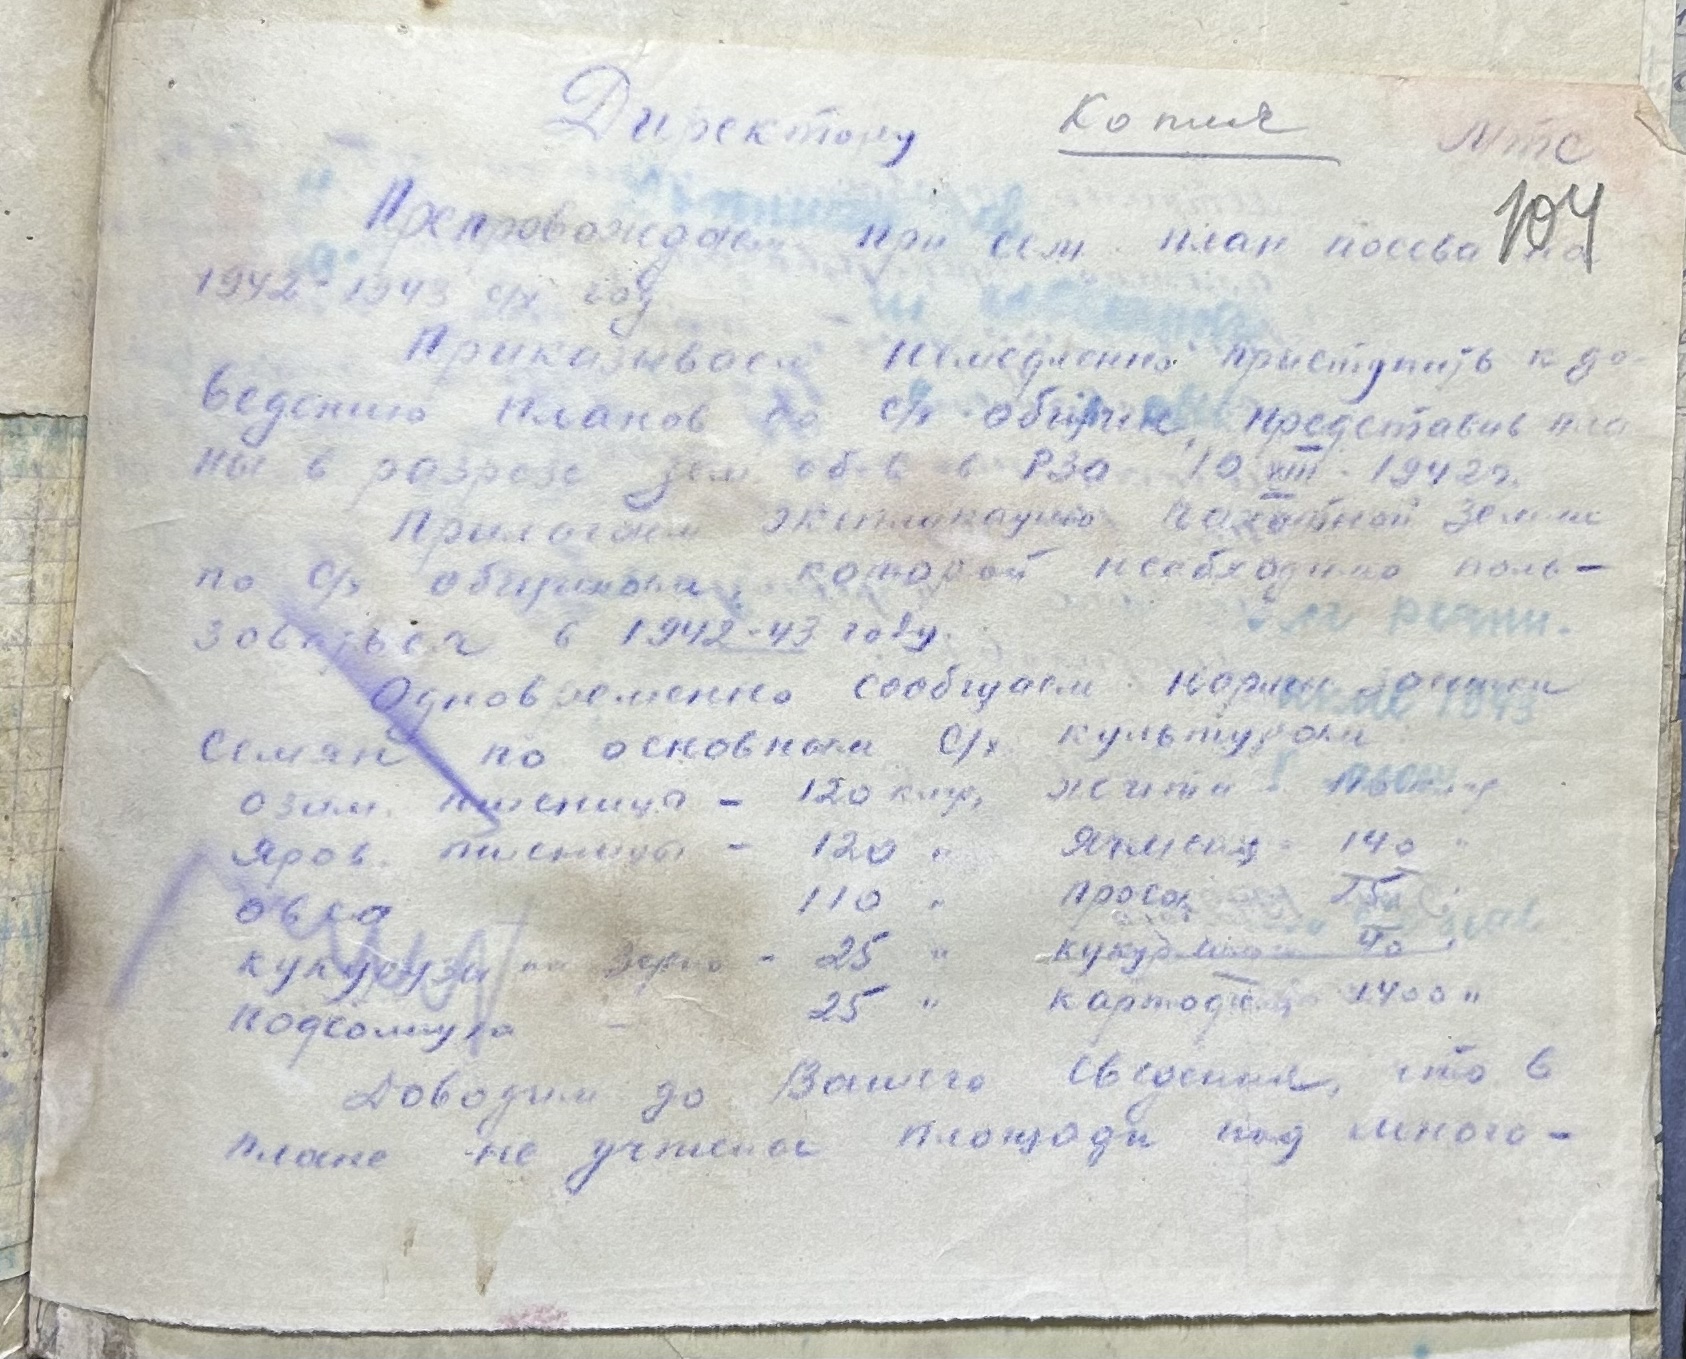 Директору Копия МТС
104
Препровождаем при сем план посева на
1942-1943 с/х год.
Приказываем немедленно приступить к до-
ведению планов до с/х общин, представив пла
ны в разрезе зем. об-в в РЗО 10 VIII-1942 г.
Прилагаем экспликацию пахотной земли
по с/х общинам, которой необходимо поль-
зоваться в 1942-43 году.
Одновременно сообщаем нормы
семян по основным с/х культурам
озим. пшеница - 120 клгр, жита
Яров. пшеницы - 120 " Ячменя - 140 "
овса 110 " проса
кукуруза на зерно - 25 " 40
Подсолнуха - 25 " картофель 1400 "
Доводим до Вашего сведения, что в
плане не учтены площади под много-